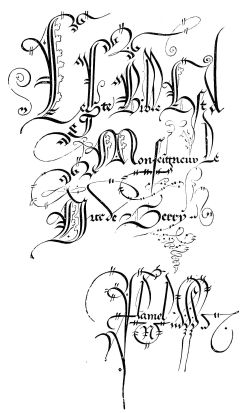 Ceste Bible Est
Monseigneur Le
Duc de Berry
Flamel